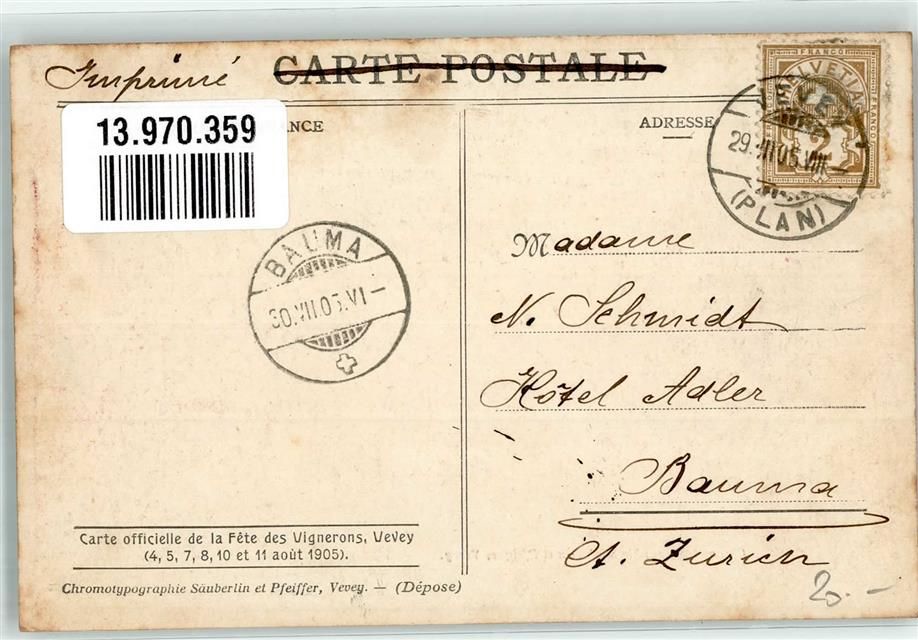 Imprimé
CARTE POSTALE
13.970.359
ANCE
ADRESSE
FRANCO
HELVETIA
FRANCO
2
29.VII.05.VIII
(PLAN)
BAUMA
30.VII.05.VI
Madame
N. Schmidt
Hôtel Adler
Bauma
Ct. Zurich
Carte officielle de la Fête des Vignerons, Vevey
(4, 5, 7, 8, 10 et 11 août 1905).
Chromotypographie Säuberlin et Pfeiffer, Vevey. — (Dépose)
20.-